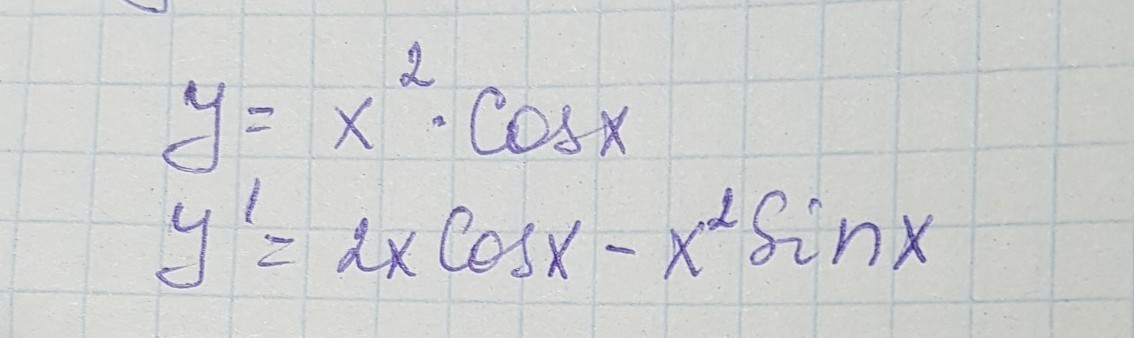 y = x² · Cosx
y' = 2x Cosx - x² Sinx